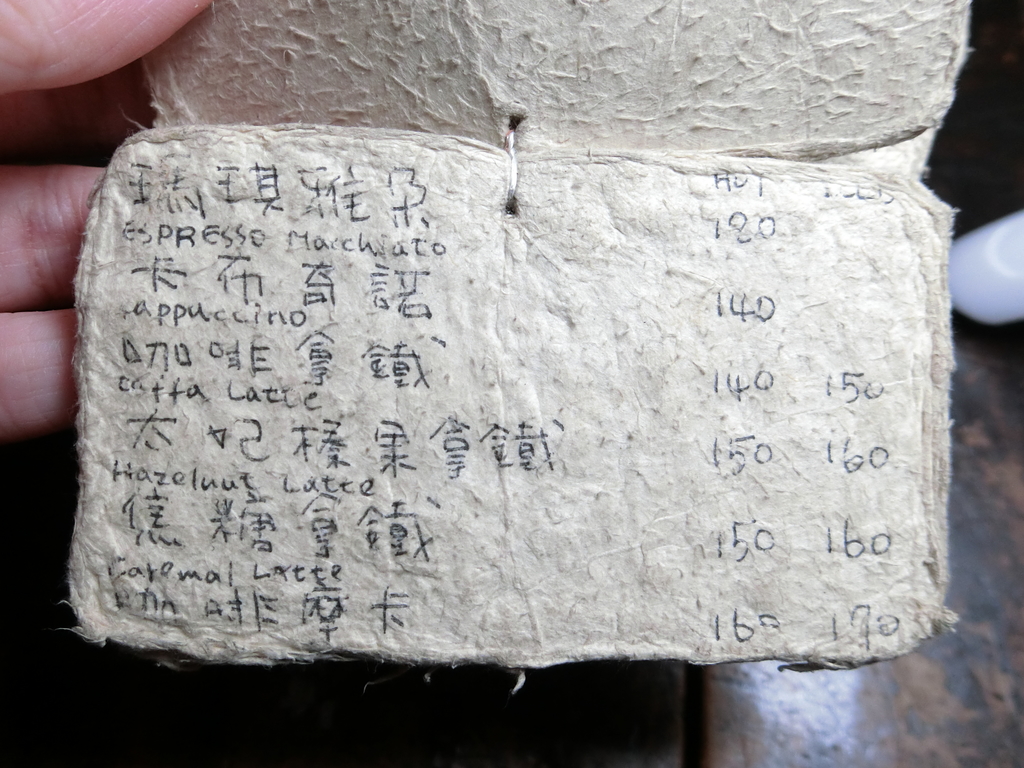 瑪琪雅朵 HOT ICED
ESPRESSO Macchiato 120
卡布奇諾
Cappuccino 140
咖啡拿鐵
Caffa Latte 140 150
太妃榛果拿鐵 150 160
Hazelnut Latte
焦糖拿鐵 150 160
Caremal Latte
咖啡摩卡 160 170